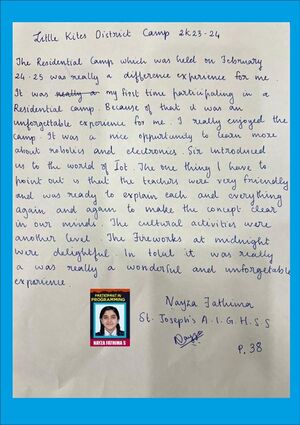 Little Kites District Camp 2K23-24
The Residential Camp which was held on February
24-25 was really a difference experience for me.
It was really a my first time participating in a
Residential camp. Because of that it was an
unforgettable experience for me. I really enjoyed the
camp. It was a nice opportunity to learn more
about robotics and electronics. Sir introduced
us to the world of Iot. The one thing I have to
point out is that the teachers were very friendly
and was ready to explain each and everything
again and again to make the concept clear
in our minds. The cultural activities were
another level. The Fireworks at midnight
were delightful. In total it was really
a was really a wonderful and unforgetable
experience
PROGRAMMING
NAYZA FATHIMA S
Nayza Fathima
St. Joseph's A.I.G.H.S.S
Nayza
P.38